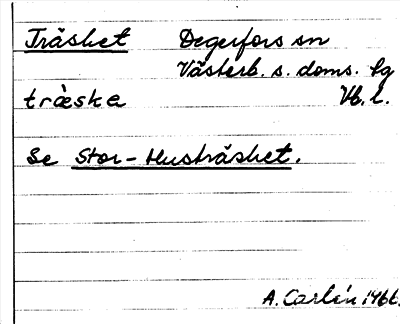 Träsket Degerfors sn
Västerb. s. doms. hg
träska Vb. l.
Se Stor-Husträsket.
A. Carlén 1966.